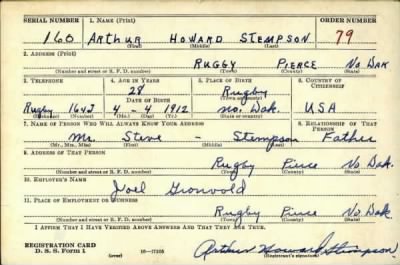 SERIAL NUMBER 1. NAME (Print) ORDER NUMBER
160 ARTHUR HOWARD STEMPSON 79
(First) (Middle) (Last)
2. ADDRESS (Print)
RUGGY PIERCE No DAK
(Number and street or R. F. D. number) (Town) (County) (State)
3. TELEPHONE 4. AGE IN YEARS 5. PLACE OF BIRTH 6. COUNTRY OF CITIZENSHIP
28 Rugby
DATE OF BIRTH (Town or county)
Rugby 1642 4 - 4 1912 No. Dak. USA
(Exchange) (Number) (Mo.) (Day) (Yr.) (State or country)
7. NAME OF PERSON WHO WILL ALWAYS KNOW YOUR ADDRESS 8. RELATIONSHIP OF THAT PERSON
Mr. Steve - Stempson Father
(Mr., Mrs., Miss) (First) (Middle) (Last)
9. ADDRESS OF THAT PERSON
Rugby Pierce No Dak.
(Number and street or R. F. D. number) (Town) (County) (State)
10. EMPLOYER'S NAME
Joel Gronvold
11. PLACE OF EMPLOYMENT OR BUSINESS
Rugby Pierce No Dak.
(Number and street or R. F. D. number) (Town) (County) (State)
I AFFIRM THAT I HAVE VERIFIED ABOVE ANSWERS AND THAT THEY ARE TRUE.
REGISTRATION CARD
D. S. S. Form 1 (over) 16-17105 Arthur Howard Stempson
(Registrant's signature)